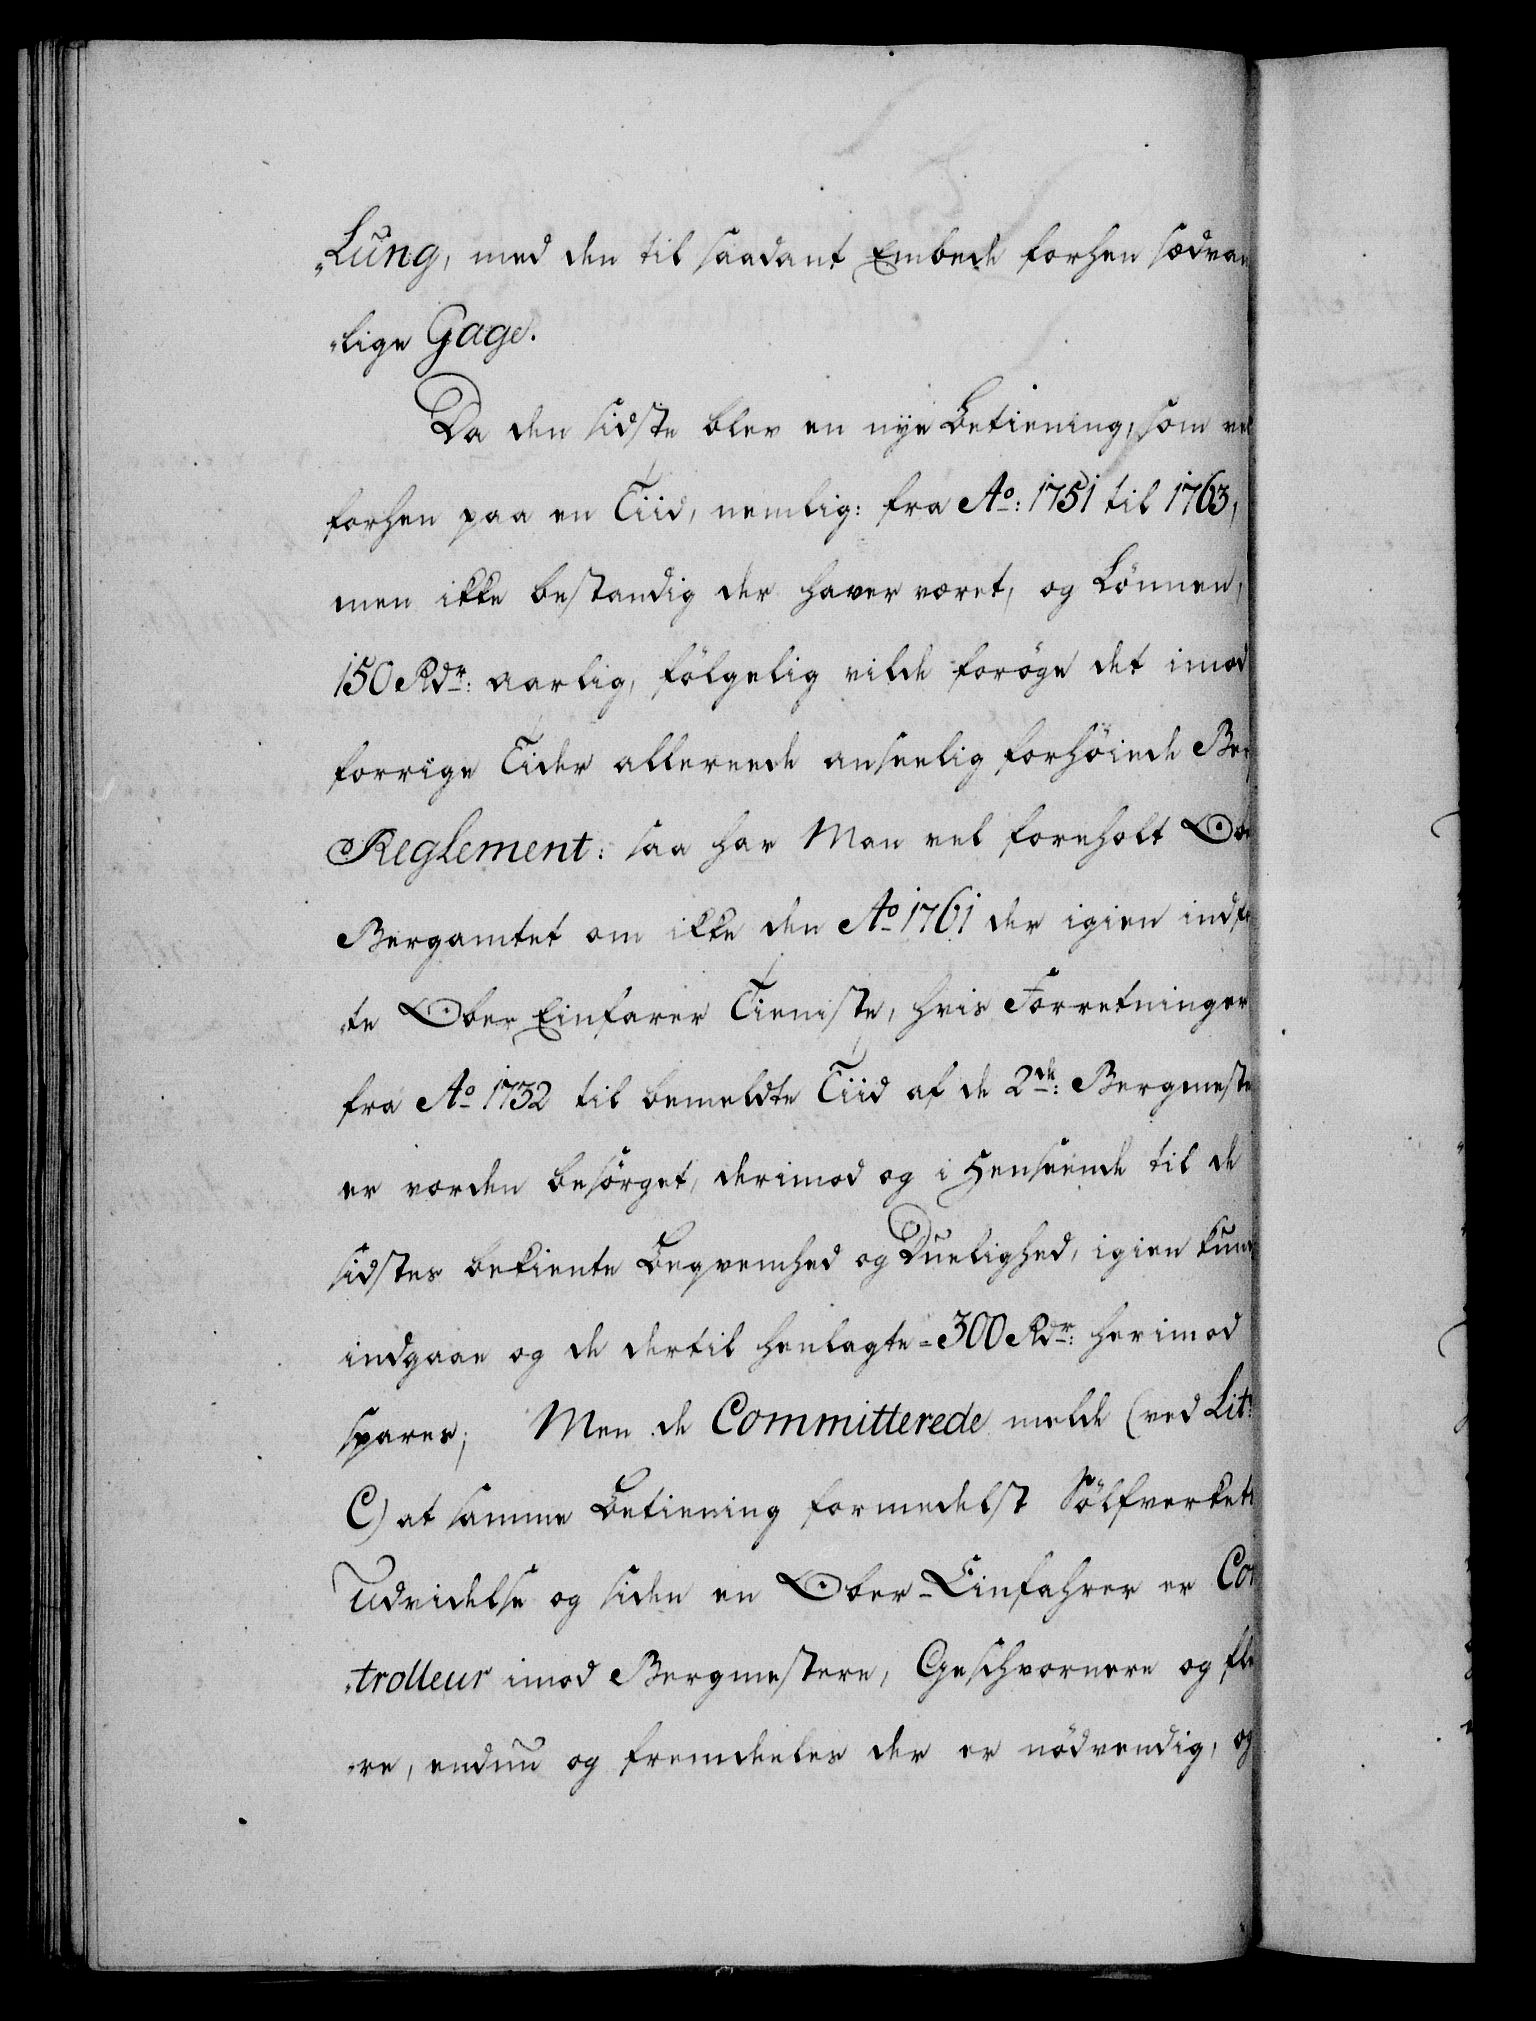 „Lung, med den til saadant Embede forhen sædvan
„lige Gage.
Da den sidste blev en nye Betiening, som vel
forhen paa en Tiid, nemlig: fra Ao: 1751 til 1763,
men ikke bestandig der haver været, og Lønnen,
150 Rdr: aarlig, følgelig vilde forøge det imod
forrige Tider allereede anseelig forhøiede Berg
Reglement: saa har Man vel foreholt Ober
Bergamtet om ikke den Ao 1761 der igien indfø
„te Ober Einfarer Tieniste, hvis Forretninger
fra Ao 1732 til bemeldte Tiid af de 2de: Bergmeste
er vorden besørget, derimod og i Henseende til de
sidstes bekiente Beqvemhed og Duelighed, igien kun
indgaae og de dertil henlagte = 300 Rdr: herimod
spares; Men de Committerede melde (ved Litr
C) at samme Betiening formedelst Sølfverkets
Udvidelse og siden en Ober-Einfahrer er Con
„trolleur imod Bergmestere, Geschvornere og fle
„re, endnu og fremdeeles der er nødvendig, og